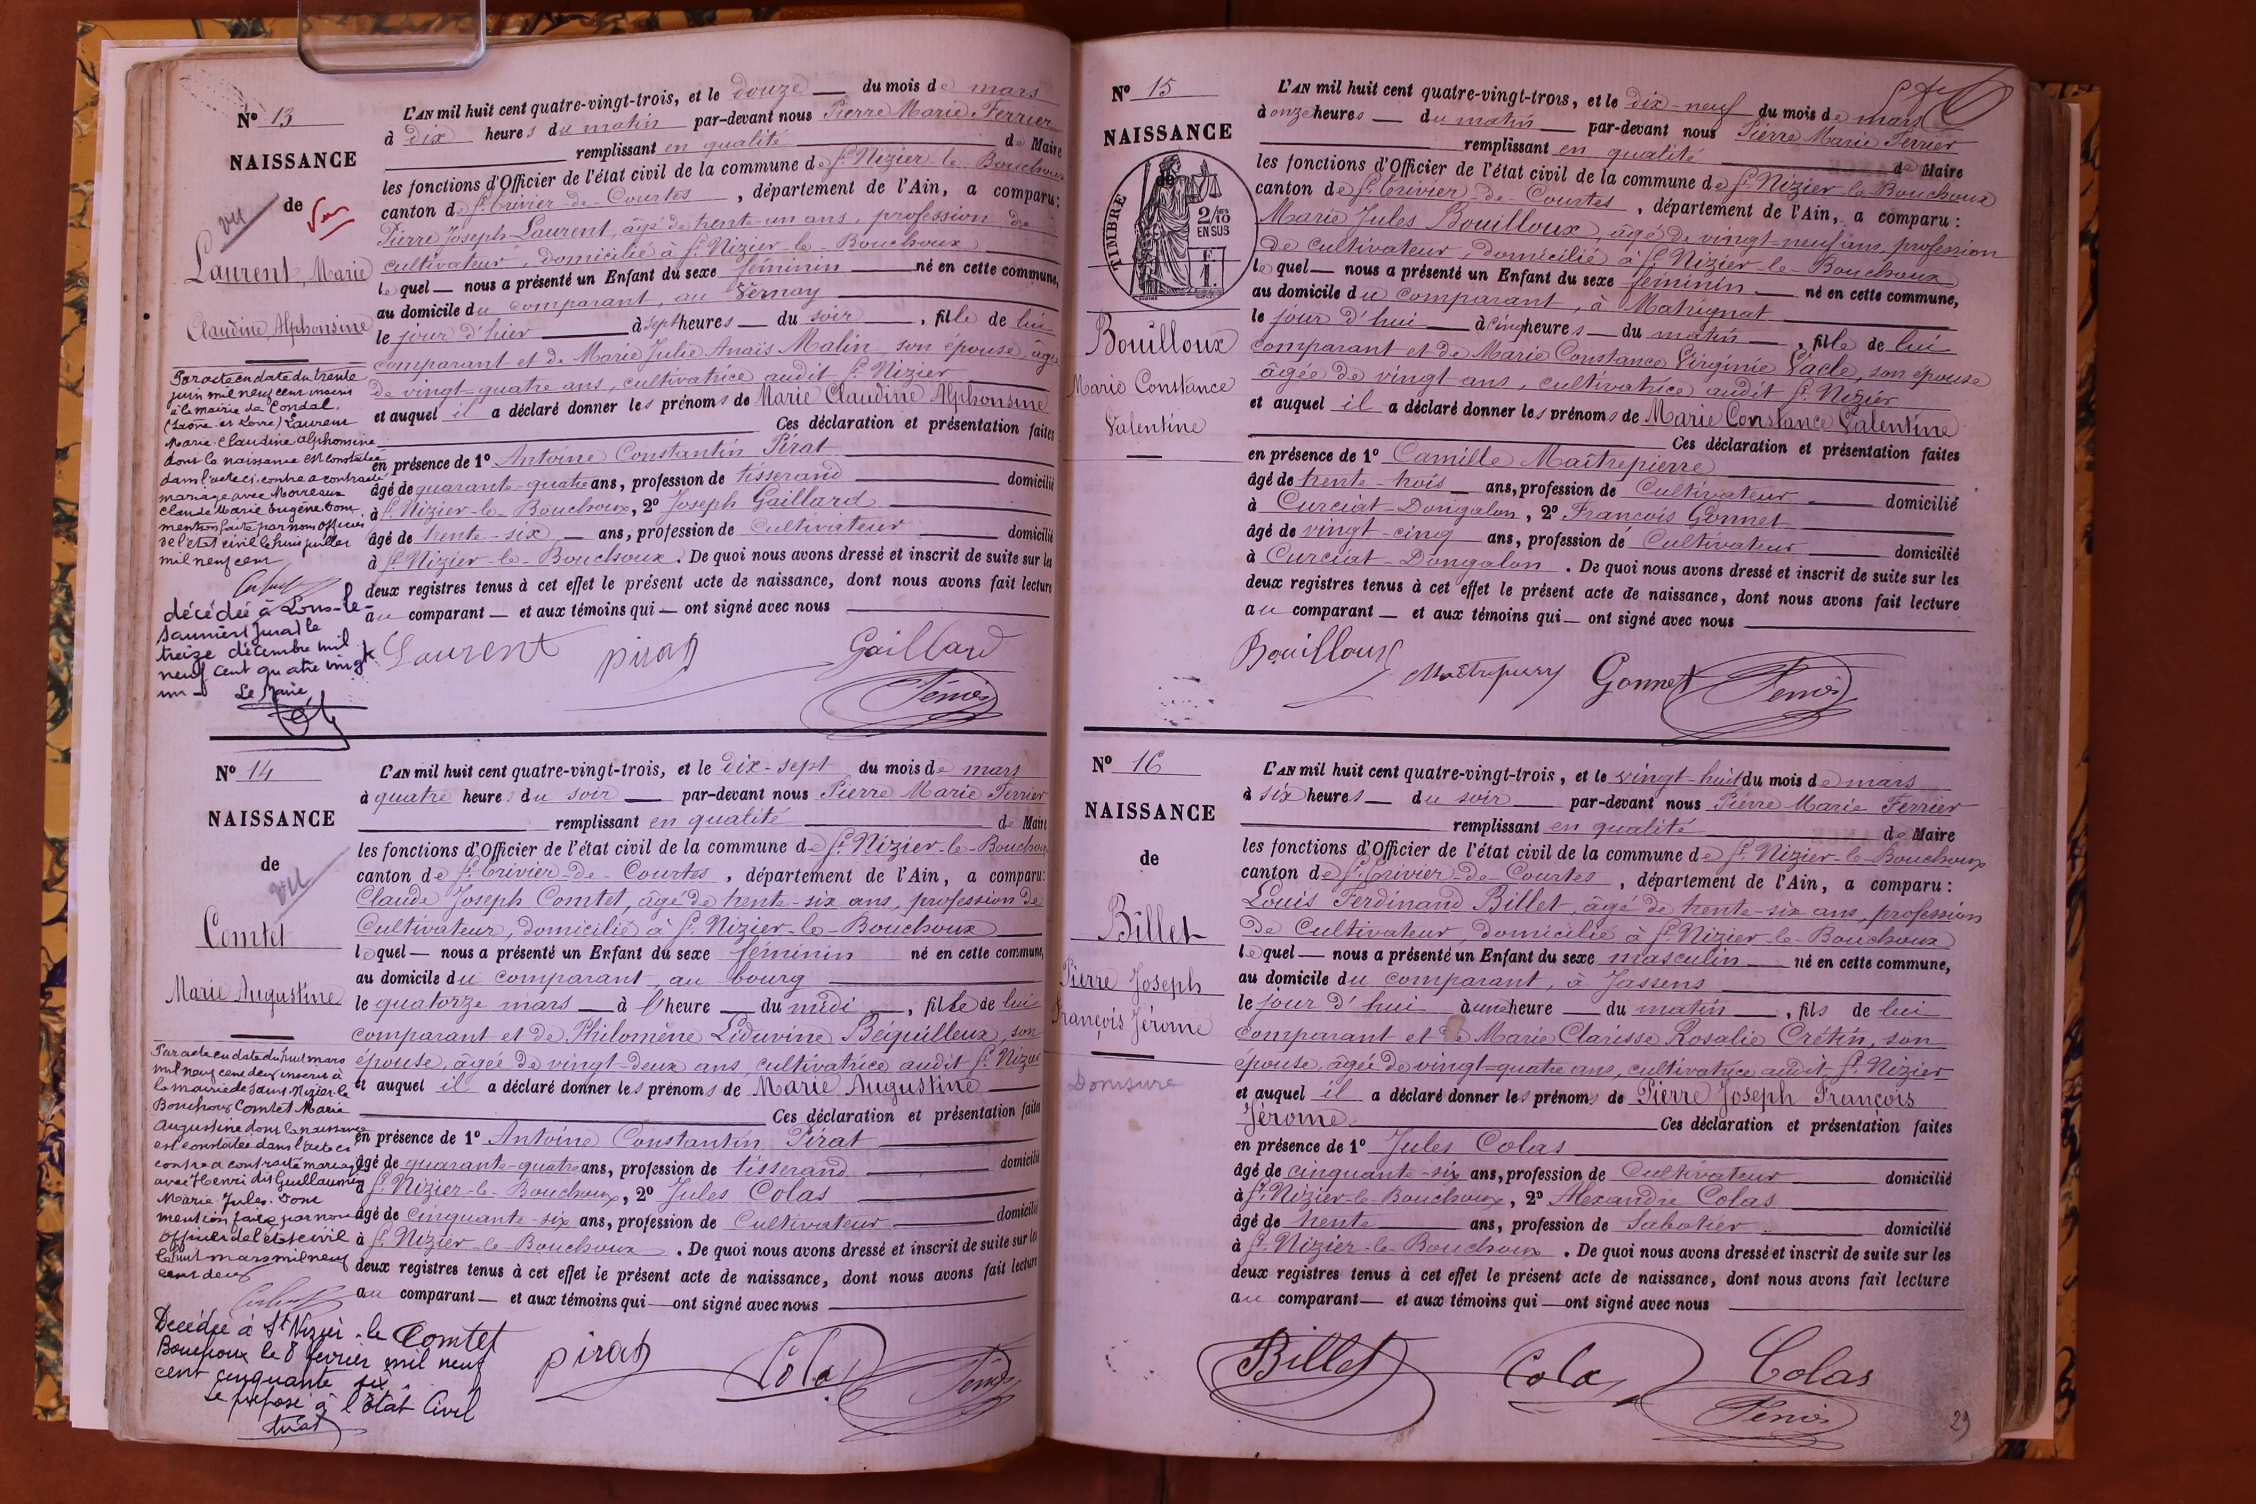 Nº 13
NAISSANCE
de
vu
Vu
Laurent, Marie
Claudine, Alphonsine
Par acte en date du trente
juin mil neuf cent inscrit
à la mairie de Condal
(Saône et Loire) Laurent
Marie Claudine Alphonsine
dont la naissance est constatée
dans l'acte ci-contre a contracté
mariage avec Moireaux
Claude Marie Eugène. Dont
mention faite par nous officier
de l'état civil le huit juillet
mil neuf cent
décédée à Lons-le-
Saunier (Jura) le
treize décembre mil
neuf cent quatre vingt
un
Le Maire
L'AN mil huit cent quatre-vingt-trois, et le douze du mois de mars
à dix heures du matin par-devant nous Pierre Marie Ferrier
remplissant en qualité de Maire
les fonctions d'Officier de l'état civil de la commune de St Nizier-le-Bouchoux
canton de St Trivier-de-Courtes, département de l'Ain, a comparu:
Pierre Joseph Laurent, âgé de trente-un ans, profession de
cultivateur, domicilié à St Nizier-le-Bouchoux
lequel nous a présenté un Enfant du sexe féminin né en cette commune,
au domicile du comparant, au Vernay
le jour d'hier à sept heures du soir, fille de lui
comparant et de Marie Julie Anaïs Malin, son épouse, âgée
de vingt-quatre ans, cultivatrice audit St Nizier
et auquel il a déclaré donner les prénoms de Marie Claudine Alphonsine
Ces déclaration et présentation faites
en présence de 1º Antoine Constantin Pirat
âgé de quarante-quatre ans, profession de tisserand domicilié
à St Nizier-le-Bouchoux, 2º Joseph Gaillard
âgé de trente-six ans, profession de Cultivateur domicilié
à St Nizier-le-Bouchoux. De quoi nous avons dressé et inscrit de suite sur les
deux registres tenus à cet effet le présent acte de naissance, dont nous avons fait lecture
au comparant et aux témoins qui ont signé avec nous
Laurent pirat Gaillard
Ferrier
Nº 14
NAISSANCE
de
vu
Comtet
Marie Augustine
Par acte en date du huit mars
mil neuf cent deux inscrit à
la mairie de Saint-Nizier-le
Bouchoux Comtet Marie
Augustine dont la naissance
est constatée dans l'acte ci
contre a contracté mariage
avec Henri dit Guillaumin
Marie Jules. Dont
mention faite par nous
Officier de l'état civil
le huit mars mil neuf
cent deux
Décédée à St Nizier-le
Bouchoux le 8 février mil neuf
cent cinquante six
Le préposé à l'état Civil
Pirat
L'AN mil huit cent quatre-vingt-trois, et le dix-sept du mois de mars
à quatre heures du soir par-devant nous Pierre Marie Ferrier
remplissant en qualité de Maire
les fonctions d'Officier de l'état civil de la commune de St Nizier-le-Bouchoux
canton de St Trivier-de-Courtes, département de l'Ain, a comparu:
Claude Joseph Comtet, âgé de trente-six ans, profession de
Cultivateur, domicilié à St Nizier-le-Bouchoux
lequel nous a présenté un Enfant du sexe féminin né en cette commune,
au domicile du comparant, au bourg
le quatorze mars à l'heure du midi, fille de lui
comparant et de Philomène Liduvine Béquilleux, son
épouse, âgée de vingt-deux ans, cultivatrice audit St Nizier
et auquel il a déclaré donner les prénoms de Marie Augustine
Ces déclaration et présentation faites
en présence de 1º Antoine Constantin Pirat
âgé de quarante-quatre ans, profession de tisserand domicilié
à St Nizier-le-Bouchoux, 2º Jules Colas
âgé de cinquante-six ans, profession de Cultivateur domicilié
à St Nizier-le-Bouchoux. De quoi nous avons dressé et inscrit de suite sur les
deux registres tenus à cet effet le présent acte de naissance, dont nous avons fait lecture
au comparant et aux témoins qui ont signé avec nous
Comtet pirat Colas
Ferrier
Nº 15
NAISSANCE
de
TIMBRE
2/10 EN SUS
Bouilloux
Marie Constance
Valentine
L'AN mil huit cent quatre-vingt-trois, et le dix-neuf du mois de mars
à onze heures du matin par-devant nous Pierre Marie Ferrier
remplissant en qualité de Maire
les fonctions d'Officier de l'état civil de la commune de St Nizier-le-Bouchoux
canton de St Trivier-de-Courtes, département de l'Ain, a comparu:
Marie Jules Bouilloux, âgé de vingt-neuf ans, profession
de cultivateur, domicilié à St Nizier-le-Bouchoux
lequel nous a présenté un Enfant du sexe féminin né en cette commune,
au domicile du comparant, à Matrignat
le jour d'hui à cinq heures du matin, fille de lui
comparant et de Marie Constance Virginie Vacle, son épouse
âgée de vingt ans, cultivatrice audit St Nizier
et auquel il a déclaré donner les prénoms de Marie Constance Valentine
Ces déclaration et présentation faites
en présence de 1º Camille Maîtrepierre
âgé de trente-trois ans, profession de Cultivateur domicilié
à Curciat-Dongalon, 2º François Gonnet
âgé de vingt-cinq ans, profession de Cultivateur domicilié
à Curciat-Dongalon. De quoi nous avons dressé et inscrit de suite sur les
deux registres tenus à cet effet le présent acte de naissance, dont nous avons fait lecture
au comparant et aux témoins qui ont signé avec nous
Bouilloux Gonnet Ferrier
Nº 16
NAISSANCE
de
Billet
Pierre Joseph
François Jérome
Domsure
L'AN mil huit cent quatre-vingt-trois, et le vingt-huit du mois de mars
à six heures du soir par-devant nous Pierre Marie Ferrier
remplissant en qualité de Maire
les fonctions d'Officier de l'état civil de la commune de St Nizier-le-Bouchoux
canton de St Trivier-de-Courtes, département de l'Ain, a comparu:
Louis Ferdinand Billet, âgé de trente-six ans, profession
de Cultivateur, domicilié à St Nizier-le-Bouchoux
lequel nous a présenté un Enfant du sexe masculin né en cette commune,
au domicile du comparant, à Jassens
le jour d'hui à une heure du matin, fils de lui
comparant et de Marie Clarisse Rosalie Crétin, son
épouse, âgée de vingt-quatre ans, cultivatrice audit St Nizier
et auquel il a déclaré donner les prénoms de Pierre Joseph François
Jérome Ces déclaration et présentation faites
en présence de 1º Jules Colas
âgé de cinquante-six ans, profession de Cultivateur domicilié
à St Nizier-le-Bouchoux, 2º Alexandre Colas
âgé de trente ans, profession de Sabotier domicilié
à St Nizier-le-Bouchoux. De quoi nous avons dressé et inscrit de suite sur les
deux registres tenus à cet effet le présent acte de naissance, dont nous avons fait lecture
au comparant et aux témoins qui ont signé avec nous
Billet Colas Colas
Ferrier
29